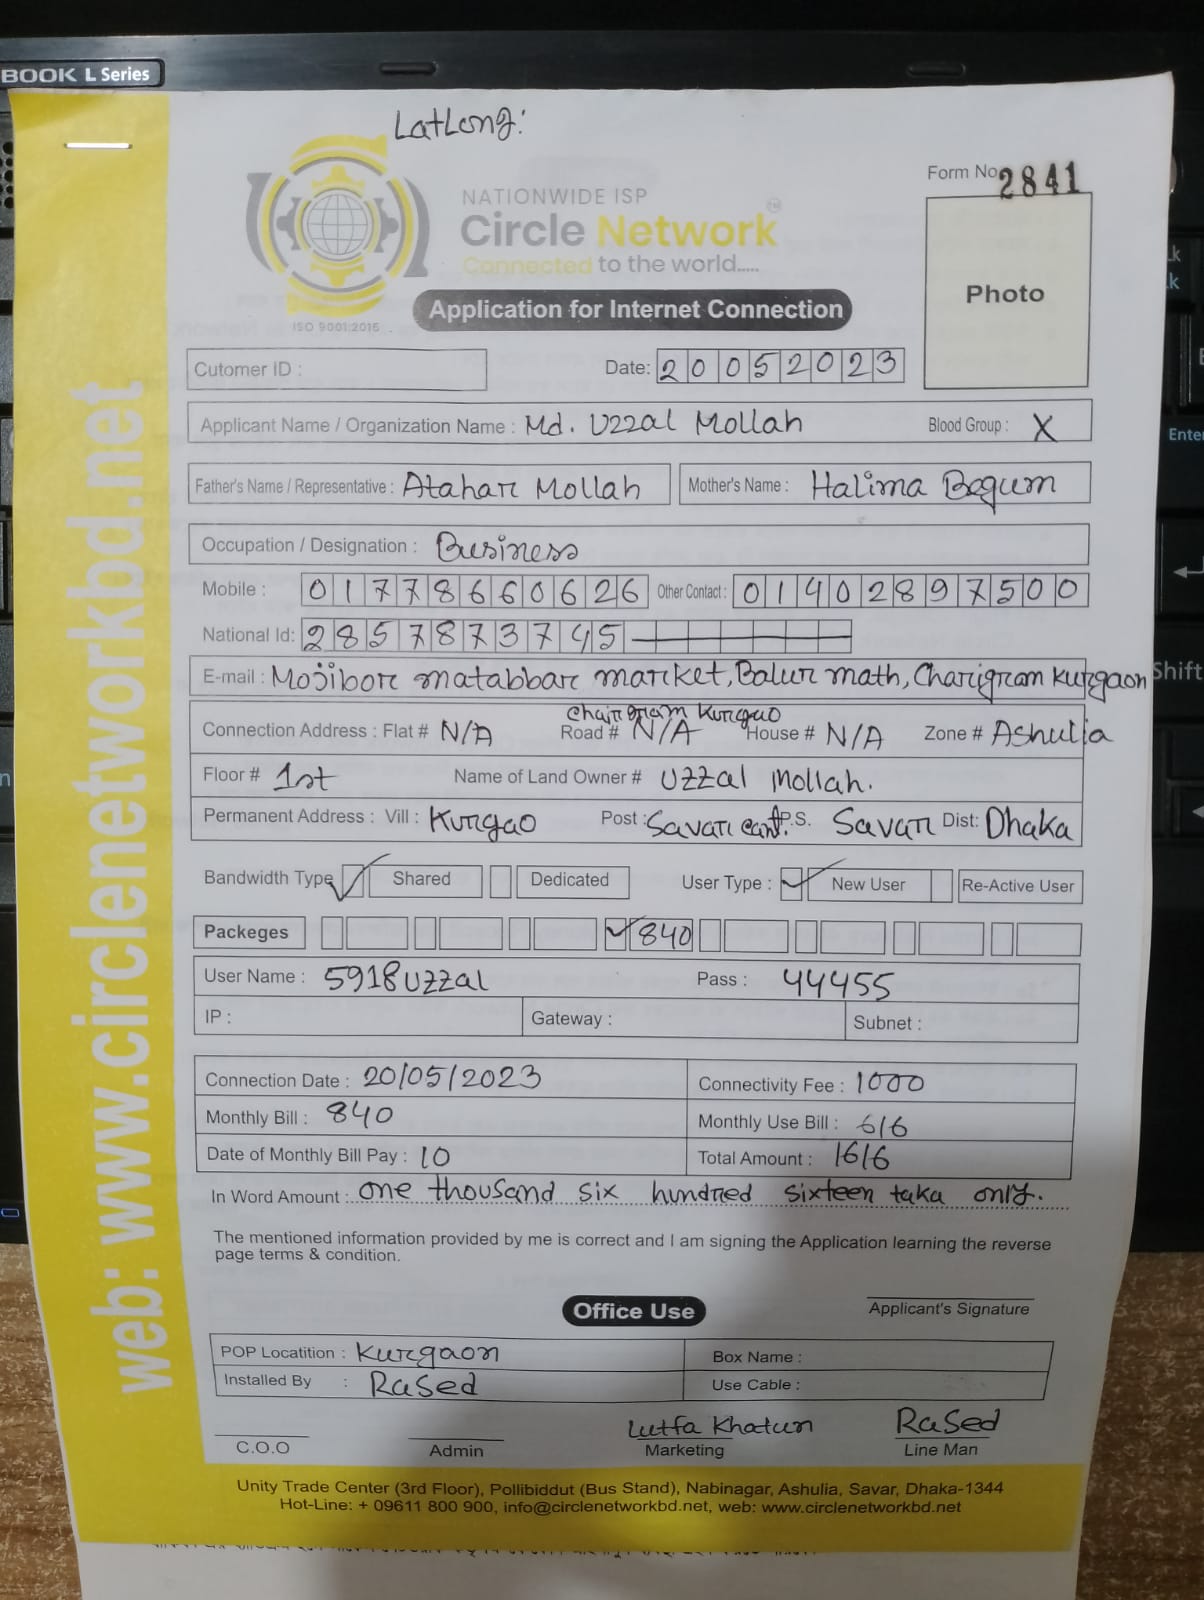 BOOK L Series
LatLong:
Form No 2841
NATIONWIDE ISP
Circle Network
Connected to the world.....
ISO 9001:2015
Application for Internet Connection
Photo
Cutomer ID :
Date: 20052023
Applicant Name / Organization Name : Md. Uzzal Mollah Blood Group : X
Father's Name / Representative : Atahar Mollah Mother's Name : Halima Begum
Occupation / Designation : Business
Mobile : 01778660626 Other Contact : 01402897500
National Id: 2857873745
E-mail : Mojibor matabbar market, Balur math, Charigram Kurgaon
Chairgram Kurgao
Connection Address : Flat # N/A Road # N/A House # N/A Zone # Ashulia
Floor # 1st Name of Land Owner # Uzzal Mollah.
Permanent Address : Vill : Kurgao Post : Savar cant. P.S. Savar Dist: Dhaka
Bandwidth Type Shared Dedicated User Type : New User Re-Active User
Packeges 840
User Name : 5918Uzzal Pass : 44455
IP : Gateway : Subnet :
Connection Date : 20/05/2023 Connectivity Fee : 1000
Monthly Bill : 840 Monthly Use Bill : 616
Date of Monthly Bill Pay : 10 Total Amount : 1616
In Word Amount : one thousand six hundred sixteen taka only.
The mentioned information provided by me is correct and I am signing the Application learning the reverse
page terms & condition.
Applicant's Signature
Office Use
POP Locatition : Kurgaon Box Name :
Installed By : RaSed Use Cable :
Lutfa Khatun RaSed
C.O.O Admin Marketing Line Man
Unity Trade Center (3rd Floor), Pollibiddut (Bus Stand), Nabinagar, Ashulia, Savar, Dhaka-1344
Hot-Line: + 09611 800 900, info@circlenetworkbd.net, web: www.circlenetworkbd.net
web: www.circlenetworkbd.net
Enter
Shift